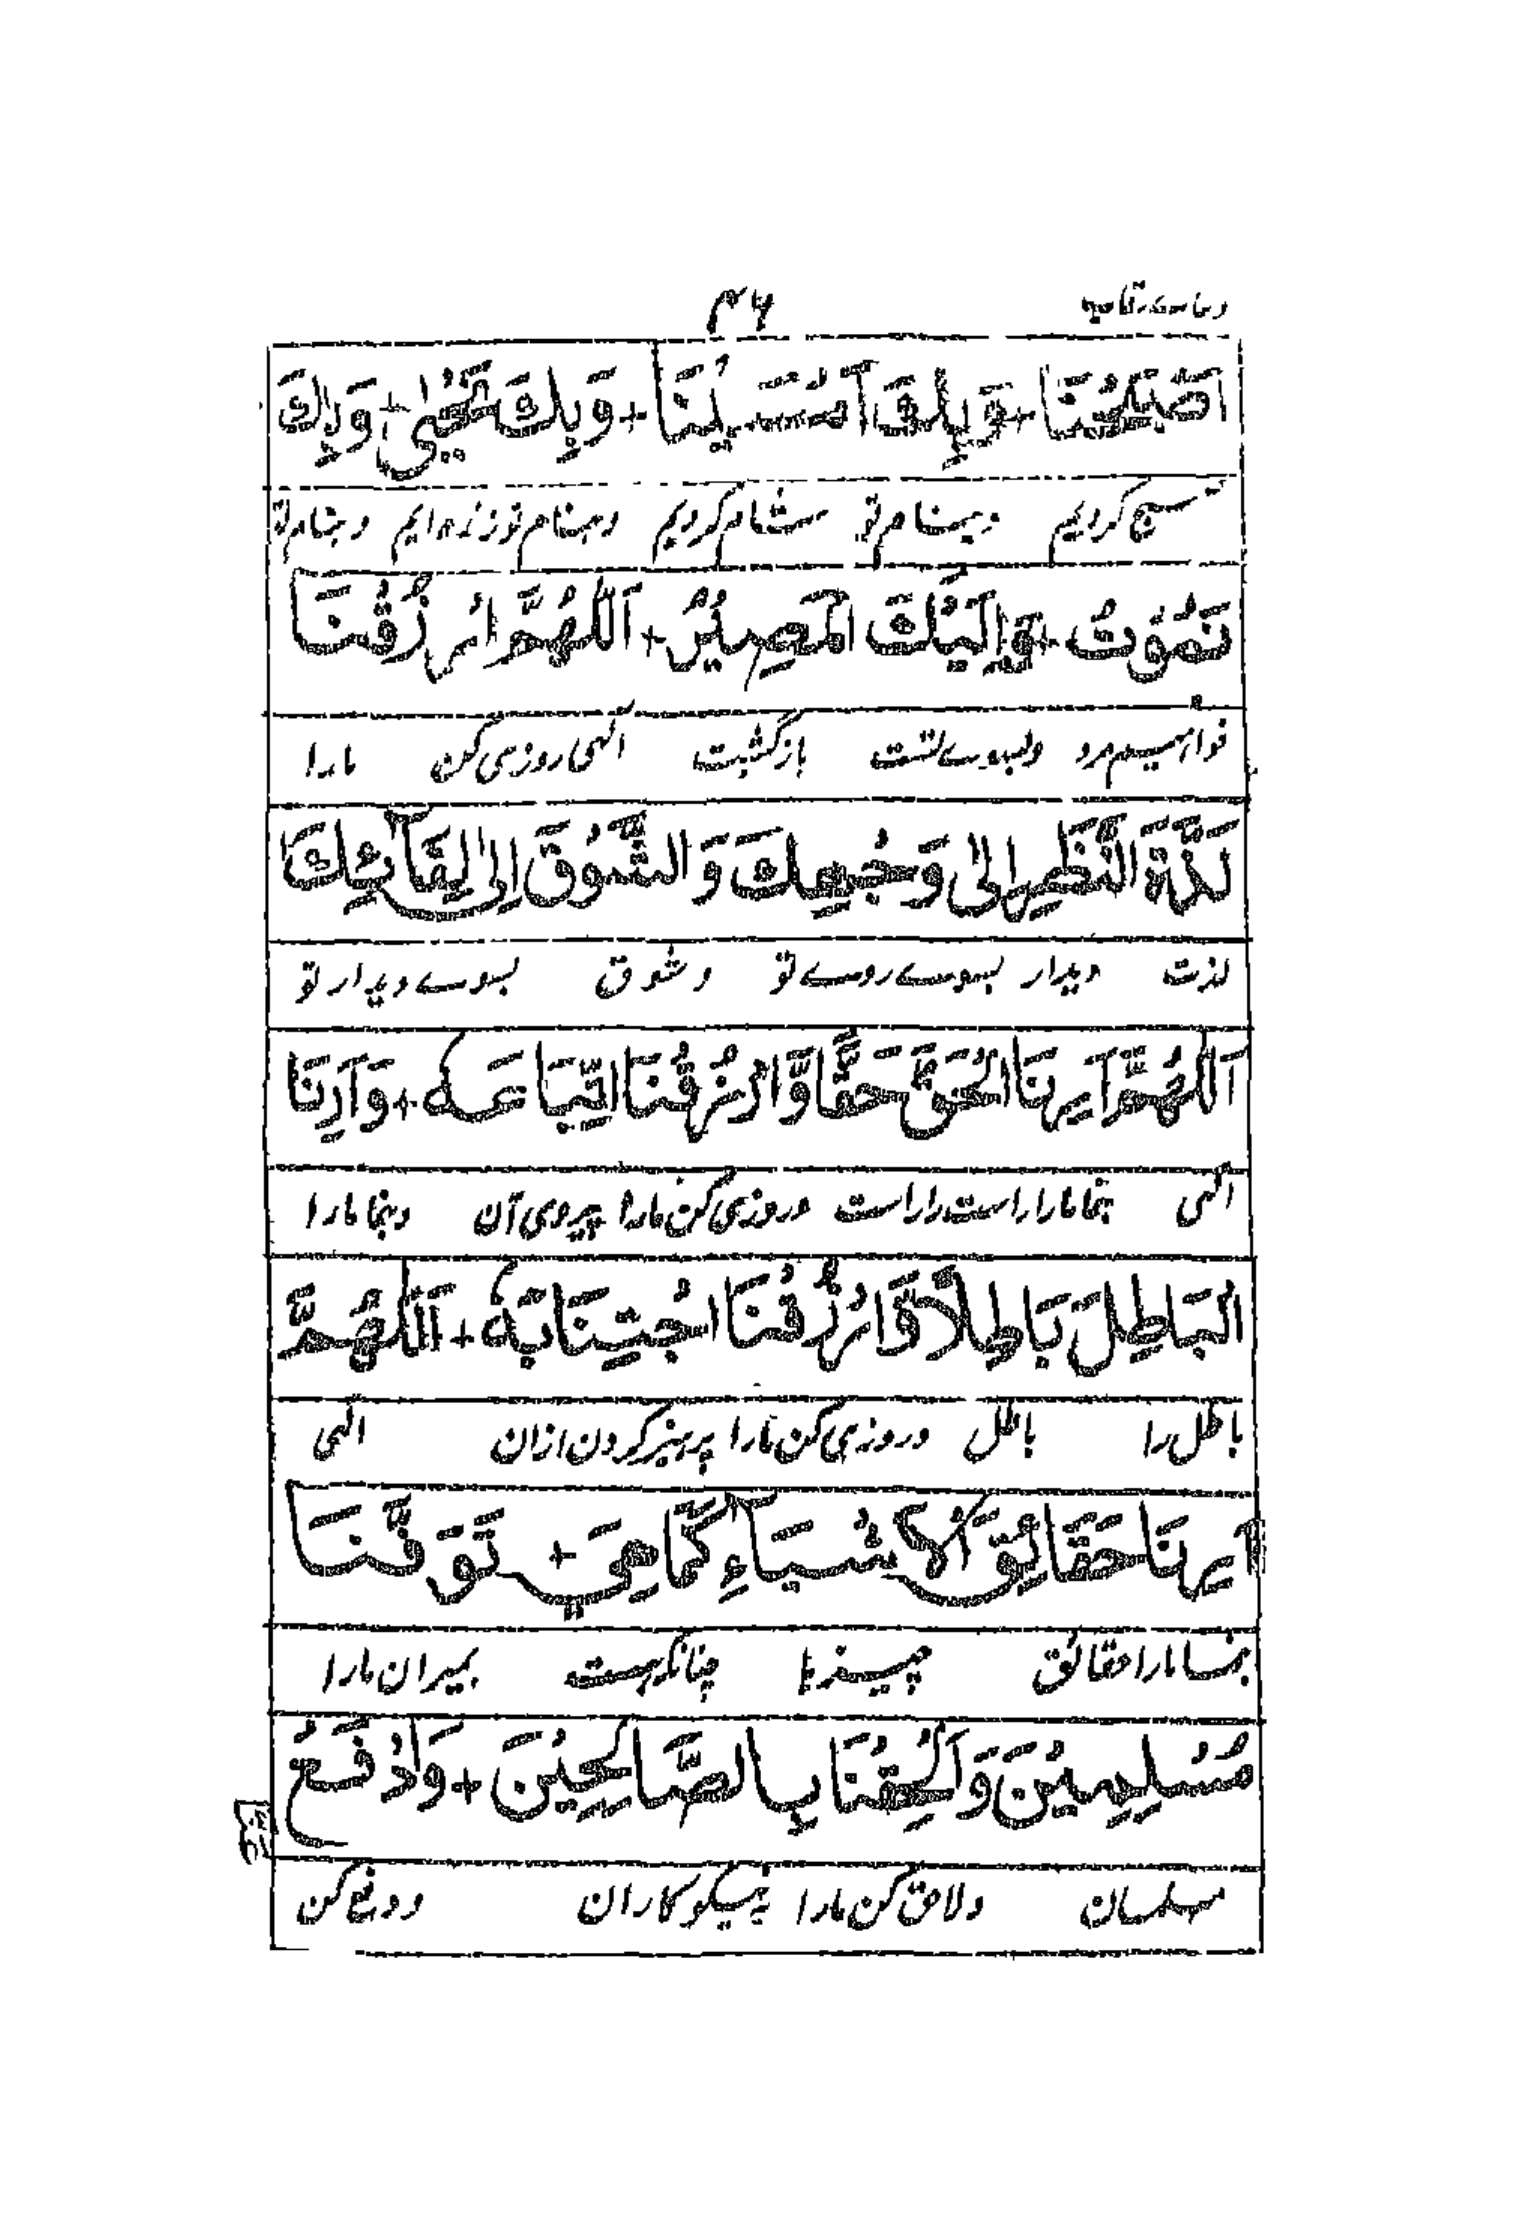 ۴۶
اَصْبَحْنَا + وَبِكَ اَمْسَيْنَا + وَبِكَ نَحْيٰى + وَبِكَ
صبح کردیم وبنام تو شام کردیم وبنام تو زنده ایم وبنام تو
نَمُوْتُ + وَاِلَيْكَ الْمَصِيْرُ + اَللّٰهُمَّ ارْزُقْنَا
خواهیم مرد وبسوے تست بازگشت الٰهی روزی کن مارا
لَذَّةَ النَّظَرِ اِلٰى وَجْهِكَ وَالشَّوْقَ اِلٰى لِقَآئِكَ
لذت دیدار بسوے روے تو وشوق بسوے دیدار تو
اَللّٰهُمَّ اَرِنَا الْحَقَّ حَقًّا وَّارْزُقْنَا اتِّبَاعَهٗ + وَاَرِنَا
الٰهی بنما مارا راست را راست وروزی کن مارا پیروی آن وبنما مارا
الْبَاطِلَ بَاطِلًا وَّارْزُقْنَا اجْتِنَابَهٗ + اَللّٰهُمَّ
باطل را باطل وروزی کن مارا پرهیز کردن ازان الٰهی
اَرِنَا حَقَائِقَ الْاَشْيَآءِ كَمَا هِيَ + تَوَفَّنَا
بنما مارا حقائق چیزها چنانکه هست بمیران مارا
مُسْلِمِيْنَ وَاَلْحِقْنَا بِالصَّالِحِيْنَ + وَادْفَعْ
مسلمان ولاحق کن مارا به نیکوکاران ودفع کن